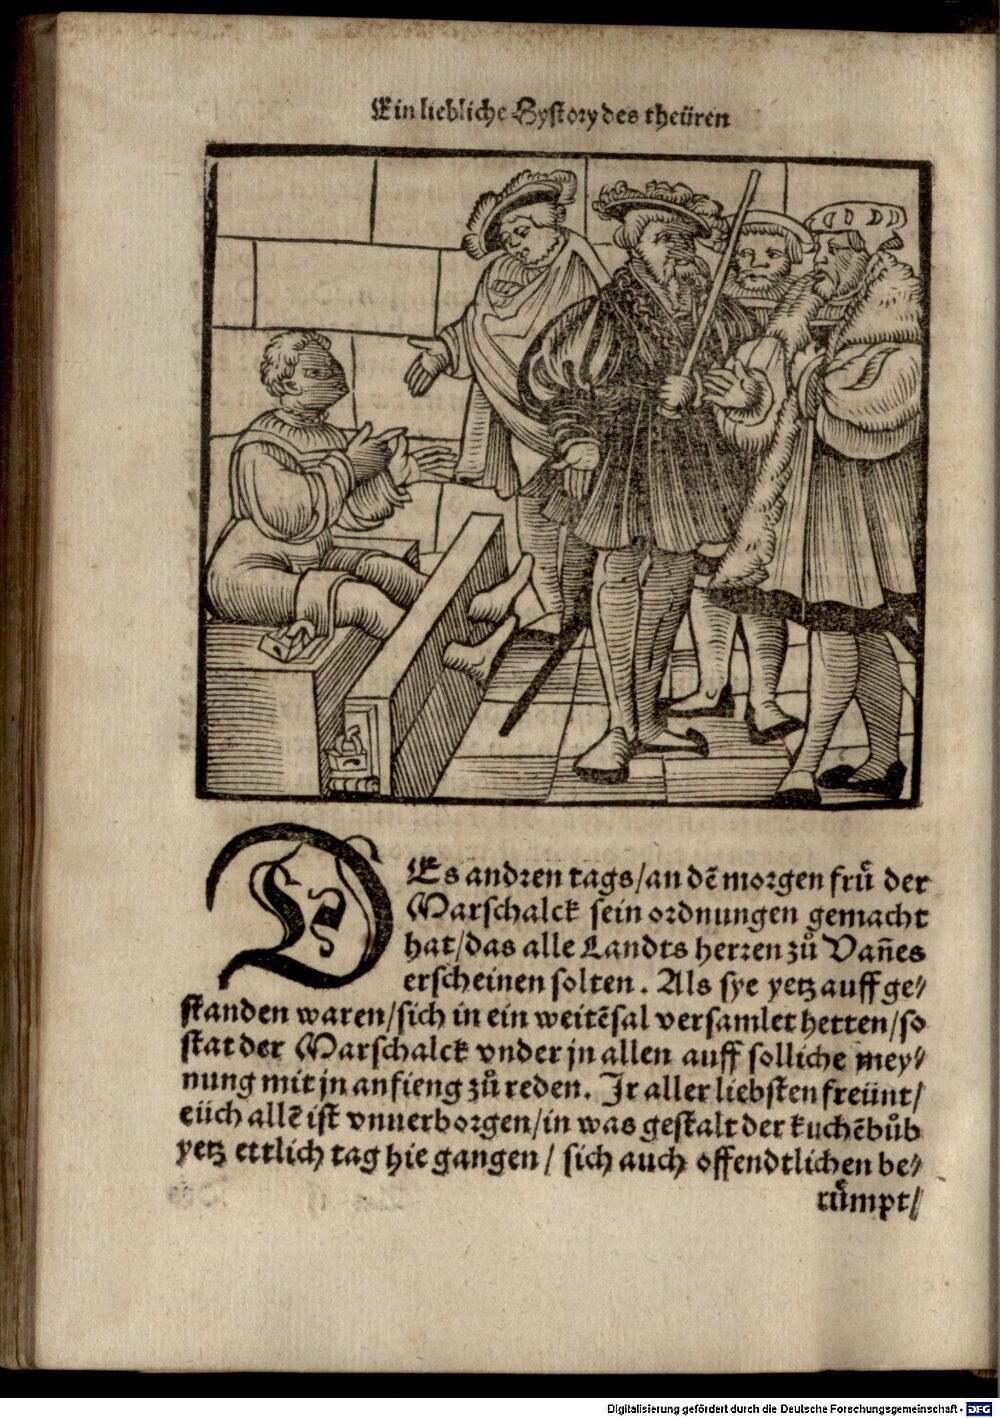 Ein liebliche Hystory des theüren
DEs andren tags/an dē morgen frü̍ der
Marschalck sein ordnungen gemacht
hat/das alle Landts herren zů Van̄es
erscheinen solten. Als sye yetz auff ge⸗
standen waren/sich in ein weitēsal versamlet hetten/so
stat der Marschalck vnder jn allen auff solliche mey⸗
nung mit jn anfieng zů reden. Jr aller liebsten freünt/
eüch allē ist vnuerborgen/in was gestalt der kuchēbůb
yetz ettlich tag hie gangen/ sich auch offendtlichen be⸗
růmpt/
Digitalisierung gefördert durch die Deutsche Forschungsgemeinschaft - DFG